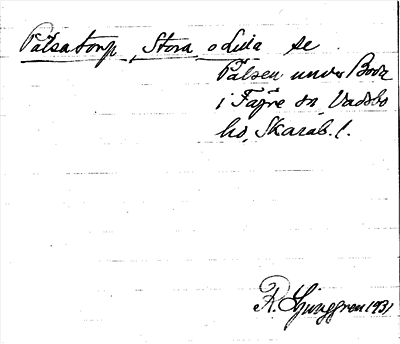 Pålsatorp, Stora o Lilla se
Pålsen under Boda
i Fägre sn, Vadsbo
hd, Skarab. l.
R. Ljunggren 1931